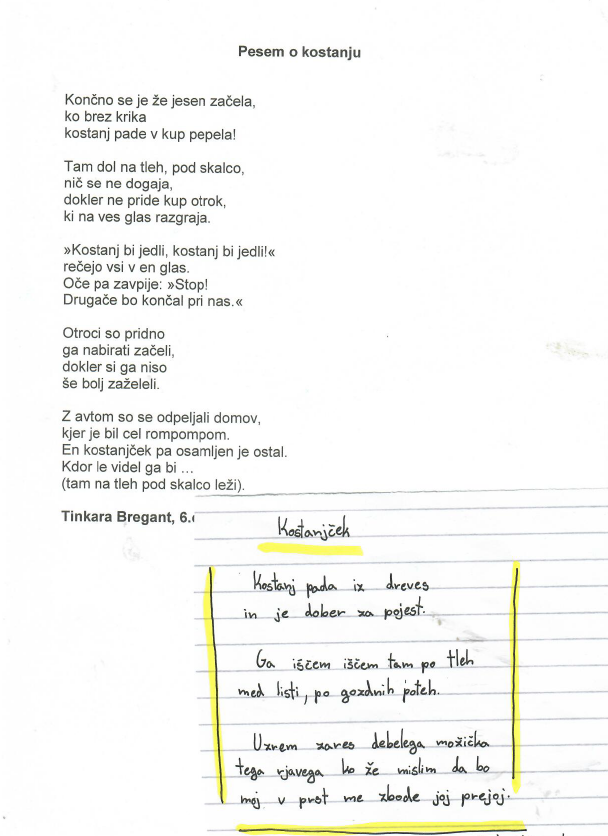 Pesem o kostanju
Končno se je že jesen začela,
ko brez krika
kostanj pade v kup pepela!
Tam dol na tleh, pod skalco,
nič se ne dogaja,
dokler ne pride kup otrok,
ki na ves glas razgraja.
»Kostanj bi jedli, kostanj bi jedli!«
rečejo vsi v en glas.
Oče pa zavpije: »Stop!
Drugače bo končal pri nas.«
Otroci so pridno
ga nabirati začeli,
dokler si ga niso
še bolj zaželeli.
Z avtom so se odpeljali domov,
kjer je bil cel rompompom.
En kostanjček pa osamljen je ostal.
Kdor le videl ga bi ...
(tam na tleh pod skalco leži).
Tinkara Bregant, 6.
Kostanjček
Kostanj pada iz dreves
in je dober za pojest.
Ga iščem iščem tam po tleh
med listi, po gozdnih poteh.
Uzrem zares debelega možička
tega rjavega ko že mislim da bo
moj v prst me zbode joj prejoj.